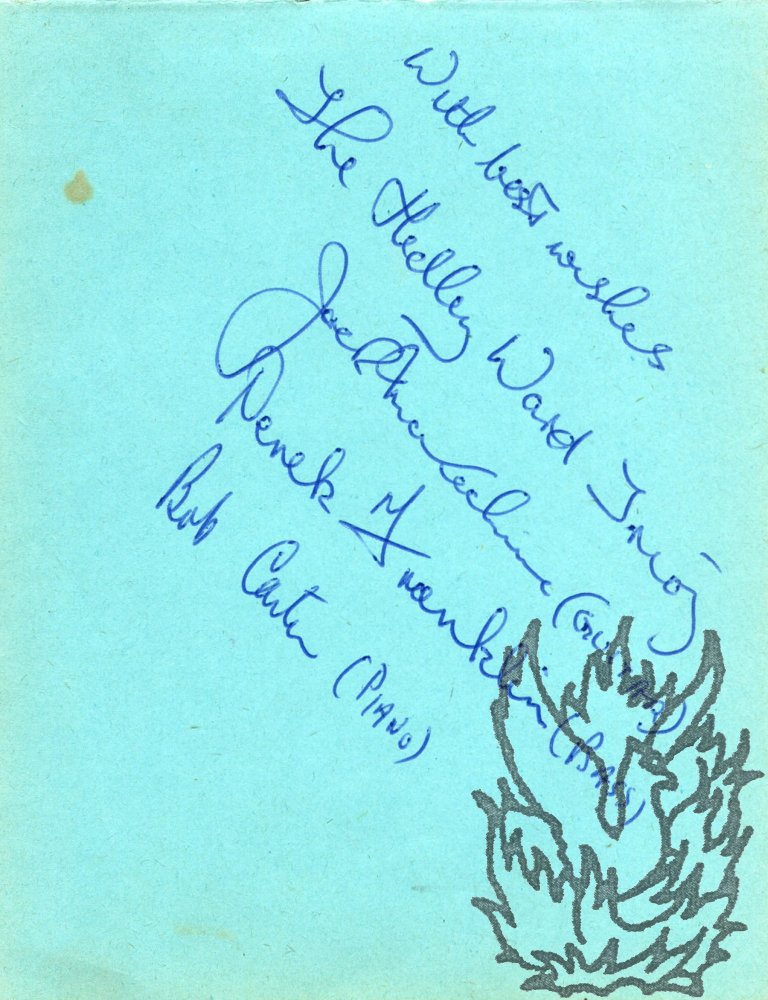 With best wishes
The Hedley Ward Trio
Jack (GUITAR)
Derek Franklin (BASS)
Bob Carter (PIANO)